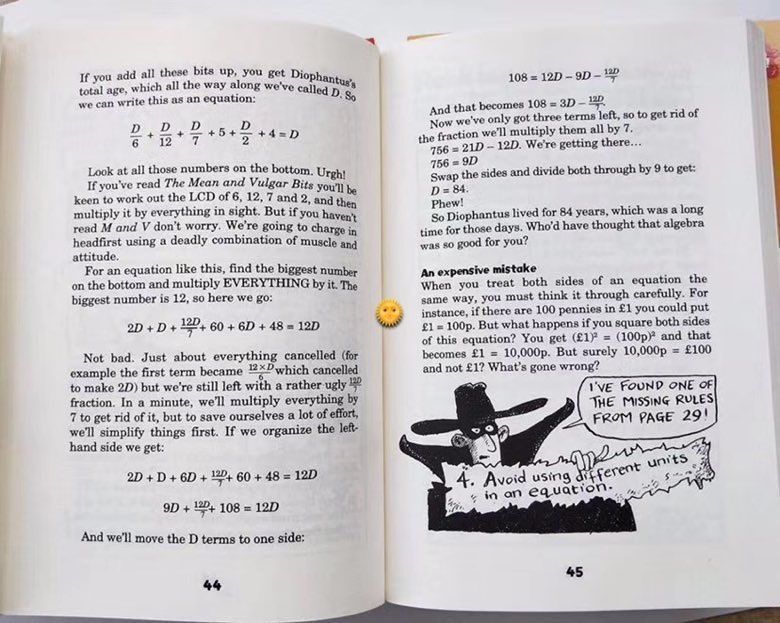 If you add all these bits up, you get Diophantus's
total age, which all the way along we've called D. So
we can write this as an equation:
D/6 + D/12 + D/7 + 5 + D/2 + 4 = D
Look at all those numbers on the bottom. Urgh!
If you've read The Mean and Vulgar Bits you'll be
keen to work out the LCD of 6, 12, 7 and 2, and then
multiply it by everything in sight. But if you haven't
read M and V don't worry. We're going to charge in
headfirst using a deadly combination of muscle and
attitude.
For an equation like this, find the biggest number
on the bottom and multiply EVERYTHING by it. The
biggest number is 12, so here we go:
2D + D + 12D/7 + 60 + 6D + 48 = 12D
Not bad. Just about everything cancelled (for
example the first term became 12×D/6 which cancelled
to make 2D) but we're still left with a rather ugly 12D/7
fraction. In a minute, we'll multiply everything by
7 to get rid of it, but to save ourselves a lot of effort,
we'll simplify things first. If we organize the left-
hand side we get:
2D + D + 6D + 12D/7 + 60 + 48 = 12D
9D + 12D/7 + 108 = 12D
And we'll move the D terms to one side:
44
108 = 12D − 9D − 12D/7
And that becomes 108 = 3D − 12D/7.
Now we've only got three terms left, so to get rid of
the fraction we'll multiply them all by 7.
756 = 21D − 12D. We're getting there...
756 = 9D
Swap the sides and divide both through by 9 to get:
D = 84.
Phew!
So Diophantus lived for 84 years, which was a long
time for those days. Who'd have thought that algebra
was so good for you?
An expensive mistake
When you treat both sides of an equation the
same way, you must think it through carefully. For
instance, if there are 100 pennies in £1 you could put
£1 = 100p. But what happens if you square both sides
of this equation? You get (£1)² = (100p)² and that
becomes £1 = 10,000p. But surely 10,000p = £100
and not £1? What's gone wrong?
I'VE FOUND ONE OF
THE MISSING RULES
FROM PAGE 29!
4. Avoid using different units
in an equation.
45